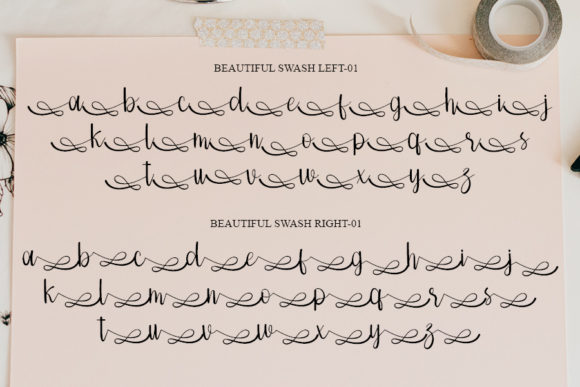 BEAUTIFUL SWASH LEFT-01
a b c d e f g h i j
k l m n o p q r s
t u v w x y z
BEAUTIFUL SWASH RIGHT-01
a b c d e f g h i j
k l m n o p q r s
t u v w x y z